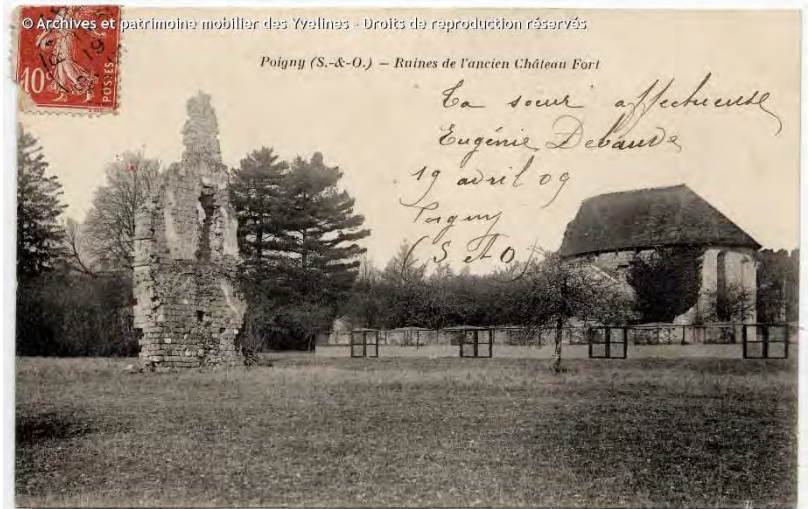 © Archives et patrimoine mobilier des Yvelines - Droits de reproduction réservés
10c
POSTES
19
Poigny (S.-&-O.) — Ruines de l'ancien Château Fort
Ta sœur affectueuse
Eugénie Debauve
19 avril 09
Poigny
(S et O